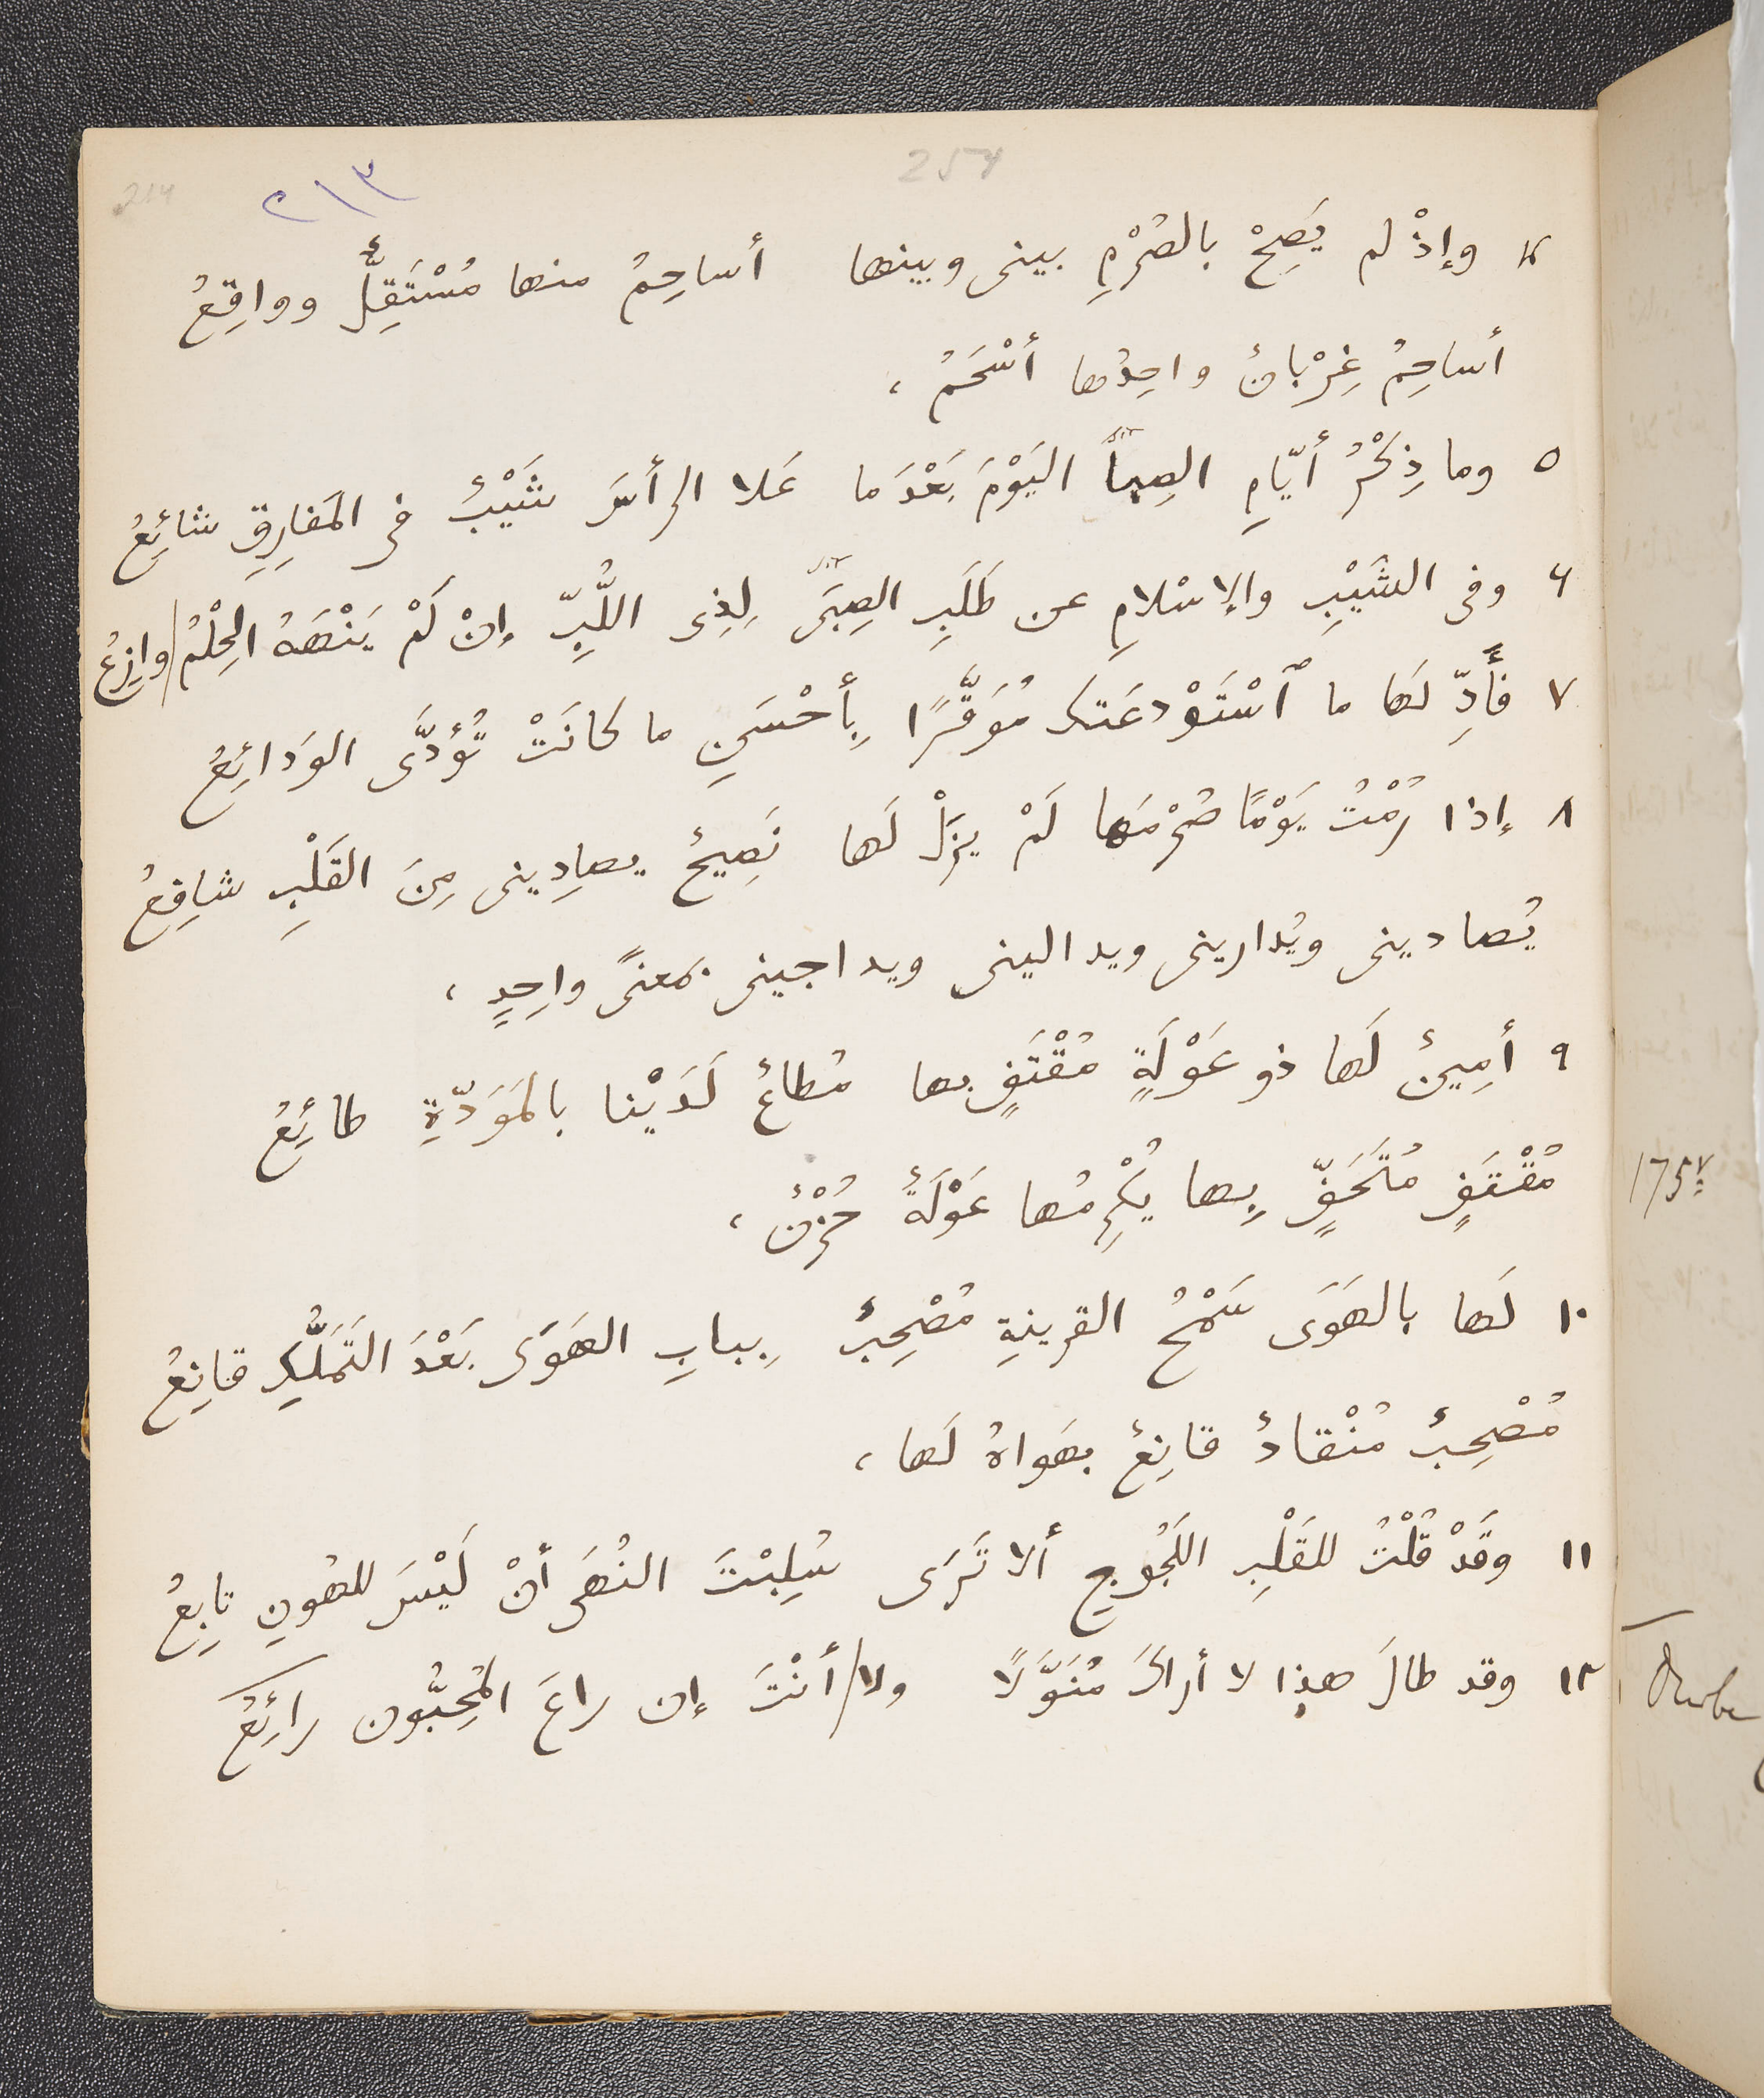 254
٢١٣
214
٤ وإذْ لم يَصِحْ بالصُرْمِ بينى وبينها أساحِمُ منها مُسْتَقِلٌّ وواقِعُ
أساحِمُ غِرْبانٌ واحِدُها أسْحَمُ ،
٥ وما ذِكْرُ أيّامِ الصِبا اليَوْمَ بَعْدَما عَلا الرأسَ شَيْبٌ فى المَفارِقِ شائِعُ
٦ وفى الشَيْبِ والإسْلامِ عن طَلَبِ الصِبَى لِذِى اللُّبِّ إنْ لَمْ يَنْهَهُ الحِلْمُ وازِعُ
٧ فَأَدِّ لَها ما ٱسْتَوْدعَتكَ مُوَقَّرًا بِأحْسَنِ ما كانَتْ تُؤدَّى الوَدائِعُ
٨ إذا رُمْتُ يَوْمًا صُرْمَها لَمْ يزَلْ لَها نَصِيحٌ يصادِينى مِنَ القَلْبِ شافِعُ
يُصادينى ويُدارينى ويدالينى ويداجينى بمعنًى واحِدٍ ،
٩ أمِينٌ لَها ذو عَوْلَةٍ مُقْتَفٍ بها مُطاعٌ لَدَيْنا بالمَوَدّةِ طائِعُ
مُقْتَفٍ مُتَحَفٍّ بِها يُكْرِمُها عَوْلَةٌ حُزْنٌ ،
١٠ لَها بالهَوَى سَمْحُ القرينةِ مُصْحِبٌ بِبابِ الهَوَى بَعْدَ التَمَلُّكِ قانِعُ
مُصْحِبٌ مُنْقادٌ قانِعٌ بهَواهُ لَها ،
١١ وقَدْ قُلْتُ للقَلْبِ اللَجُوجِ ألا تَرَى سُلِبْتَ النُهَى أنْ لَيْسَ للهُونِ تابِعُ
١٢ وقد طالَ هذا لا أراكَ مُنَوَّلًا ولا أنْتَ إن راعَ المُحِبُّون رائِعُ
175v